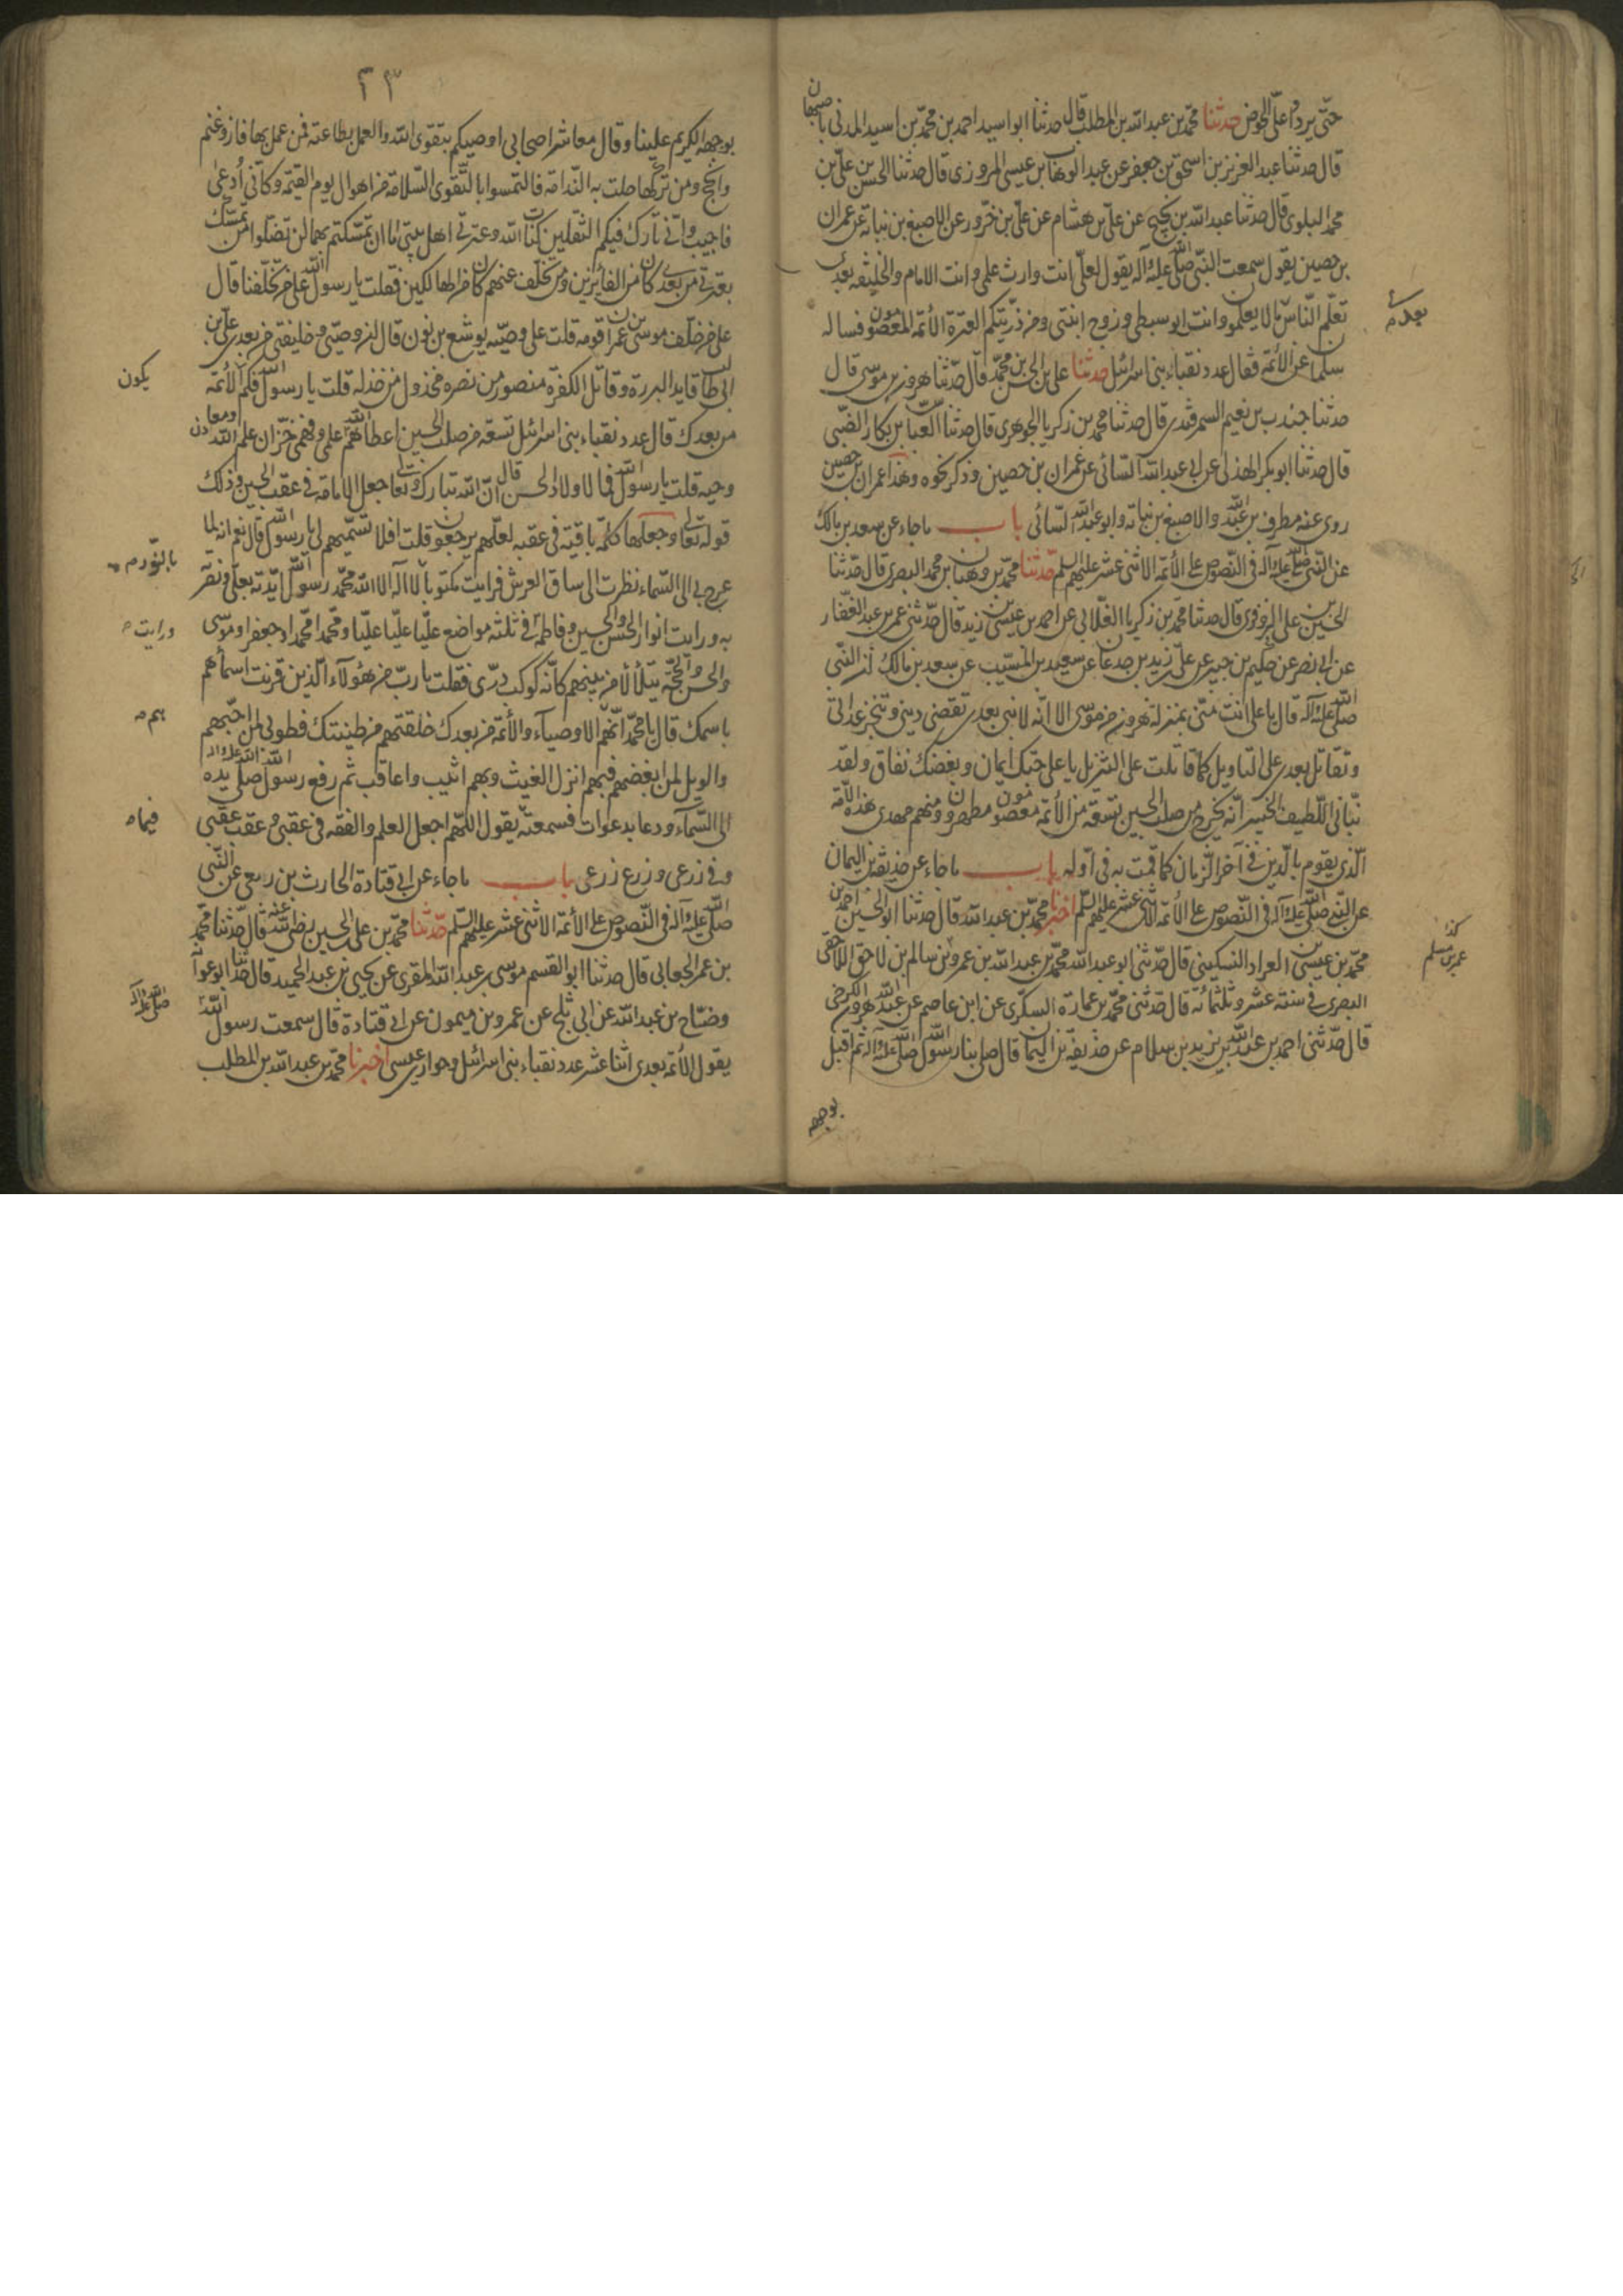 حتى يردوا على الحوض حدثنا محمد بن عبد الله بن المطلب قال حدثنا ابو اسيد احمد بن محمد بن اسيد المدنى باصبهان
قال حدثنا عبد العزيز بن اسحق بن جعفر عن عبد الوهاب بن عيسى المروزى قال حدثنا الحسن بن على بن
محمد البلوى قال حدثنا عبد الله بن نجيح عن على بن هشام عن على بن حزور عن الاصبغ بن نباته عن عمران
بن حصين يقول سمعت النبى صلى الله عليه وآله يقول لعلى انت وارث علمى وانت الامام والخليفه بعدى
بعدى م
تعلم الناس ما لا يعلمون وانت ابو سبطى وزوج ابنتى ومن ذريتكم العترة الأئمه المعصومون فساله
سلمان عن الأئمه فقال عدد نقباء بنى اسرائيل حدثنا على بن الحسن بن محمد قال حدثنا هرون بن موسى قال
حدثنا جندب بن نعيم السمرقندى قال حدثنا محمد بن زكريا الجوهرى قال حدثنا العباس بن بكار الضبى
قال حدثنا ابو بكر الهذلى عن ابى عبد الله السائى عن عمران بن حصين وذكر نحوه وهذا عمران بن حصين
روى عنه مطرف بن عبد الله والاصبغ بن نباته وابو عبد الله السائى باب ما جاء عن سعد بن مالك
عن النبى صلى الله عليه وآله فى النصوص على الأئمه الاثنى عشر عليهم السلم حدثنا محمد بن وهبان بن محمد البصرى قال حدثنا
الحسين بن على البزوفرى قال حدثنا محمد بن زكريا الغلابى عن احمد بن عيسى بن زيد قال حدثنى عمر بن عبد الغفار
عن ابى نصر عن حكيم بن جبير عن على بن زيد بن جدعان عن سعيد بن المسيب عن سعد بن مالك ان النبى
صلى الله عليه وآله قال يا على انت منى بمنزله هرون من موسى الا انه لا نبى بعدى تقضى دينى وتنجز عداتى
وتقاتل بعدى على التاويل كما قاتلت على التنزيل يا على حبك ايمان وبغضك نفاق ولقد
نبأنى اللطيف الخبير انه يخرج من صلب الحسين تسعه من الأئمه معصومون مطهرون ومنهم مهدى هذه الامة
الذى يقوم بالدين فى آخر الزمان كما قمت به فى اوله باب ما جاء عن حذيفة بن اليمان
عن النبى صلى الله عليه وآله فى النصوص على الأئمه الاثنى عشر عليهم السلم اخبرنا محمد بن عبد الله قال حدثنا ابو الحسين احمد بن
محمد بن عيسى بن العراد النسكينى قال حدثنى ابو عبد الله محمد بن عبد الله بن عمرو بن سالم بن لاحق اللاحقى
عمر بن مسلم
البصرى فى سنة عشر وثلثمائه قال حدثنى محمد بن عمارة السكرى عن ابن عاصم عن عبد الله هرون الكرخى
قال حدثنى احمد بن عبد الله بن يزيد بن سلام عن حذيفة بن اليمان قال صلى بنا رسول الله صلى الله عليه وآله ثم اقبل
بوجهه
٢٣
بوجهه الكريم علينا وقال معاشر اصحابى اوصيكم بتقوى الله والعمل بطاعته فمن عمل بها فاز وغنم
وانجح ومن تركها حلت به الندامة فالتمسوا بالتقوى السلامة من اهوال يوم القيمة وكانى أدعى
فاجيب وانى تارك فيكم الثقلين كتاب الله وعترتى اهل بيتى ما ان تمسكتم بهما لن تضلوا ومن تمسك
بعترتى من بعدى كان من الفايزين ومن تخلف عنهم كان من الهالكين فقلت يا رسول الله على من تخلفنا قال
على من خلف موسى بن عمران قومه قلت على وصيه يوشع بن نون قال ان وصيى وخليفتى من بعدى على بن
ابى طالب قايد البررة وقاتل الكفرة منصور من نصره مخذول من خذله قلت يا رسول الله فكم الأئمه
يكون
من بعدك قال عدد نقباء بنى اسرائيل تسعة من صلب الحسين اعطاهم الله علمى وفهمى خزان علم الله ومعادن
وحيه قلت يا رسول الله فما لاولاد الحسن قال ان الله تبارك وتعالى جعل الامامة فى عقب الحسين وذلك
قوله تعالى وجعلها كلمة باقية فى عقبه لعلهم يرجعون قلت افلا تسميهم لى يا رسول الله قال نعم انه لما
عرج بى الى السماء نظرت الى ساق العرش فرايت مكتوبا لا اله الا الله محمد رسول الله ايدته بعلى ونصرته
بالنور م
به ورايت انوار الحسن والحسين وفاطمة فى ثلثه مواضع عليا عليا عليا ومحمدا محمدا وجعفرا وموسى
ورايت م
والحسن والحجه يتلألأ من بينهم كانه كوكب درى فقلت يا رب من هؤلاء الذين قرنت اسماءهم
باسمك قال يا محمد انهم الاوصياء والأئمه من بعدك خلقتهم من طينتك فطوبى لمن احبهم
هم م
والويل لمن ابغضهم فبهم انزل الغيث وبهم اثيب واعاقب ثم رفع رسول الله صلى الله عليه وآله يده
الى السماء ودعا بدعوات فسمعته يقول اللهم اجعل العلم والفقه فى عقبى وعقب عقبى
فيما م
وفى زرعى وزرع زرعى باب ما جاء عن ابى قتادة الحارث بن ربعى عن النبى
صلى الله عليه وآله فى النصوص على الأئمه الاثنى عشر عليهم السلم حدثنا محمد بن على بن الحسين رضى الله عنه قال حدثنا محمد
بن عمر الجعابى قال حدثنا ابو القسم موسى بن عبد الله المقرى عن يحيى بن عبد الحميد قال حدثنا ابو عوانه
وضاح بن عبد الله عن ابى بلج عن عمرو بن ميمون عن ابى قتادة قال سمعت رسول الله
صلى الله عليه وآله
يقول الأئمه بعدى اثنا عشر عدد نقباء بنى اسرائيل وحوارى عيسى اخبرنا محمد بن عبد الله بن المطلب